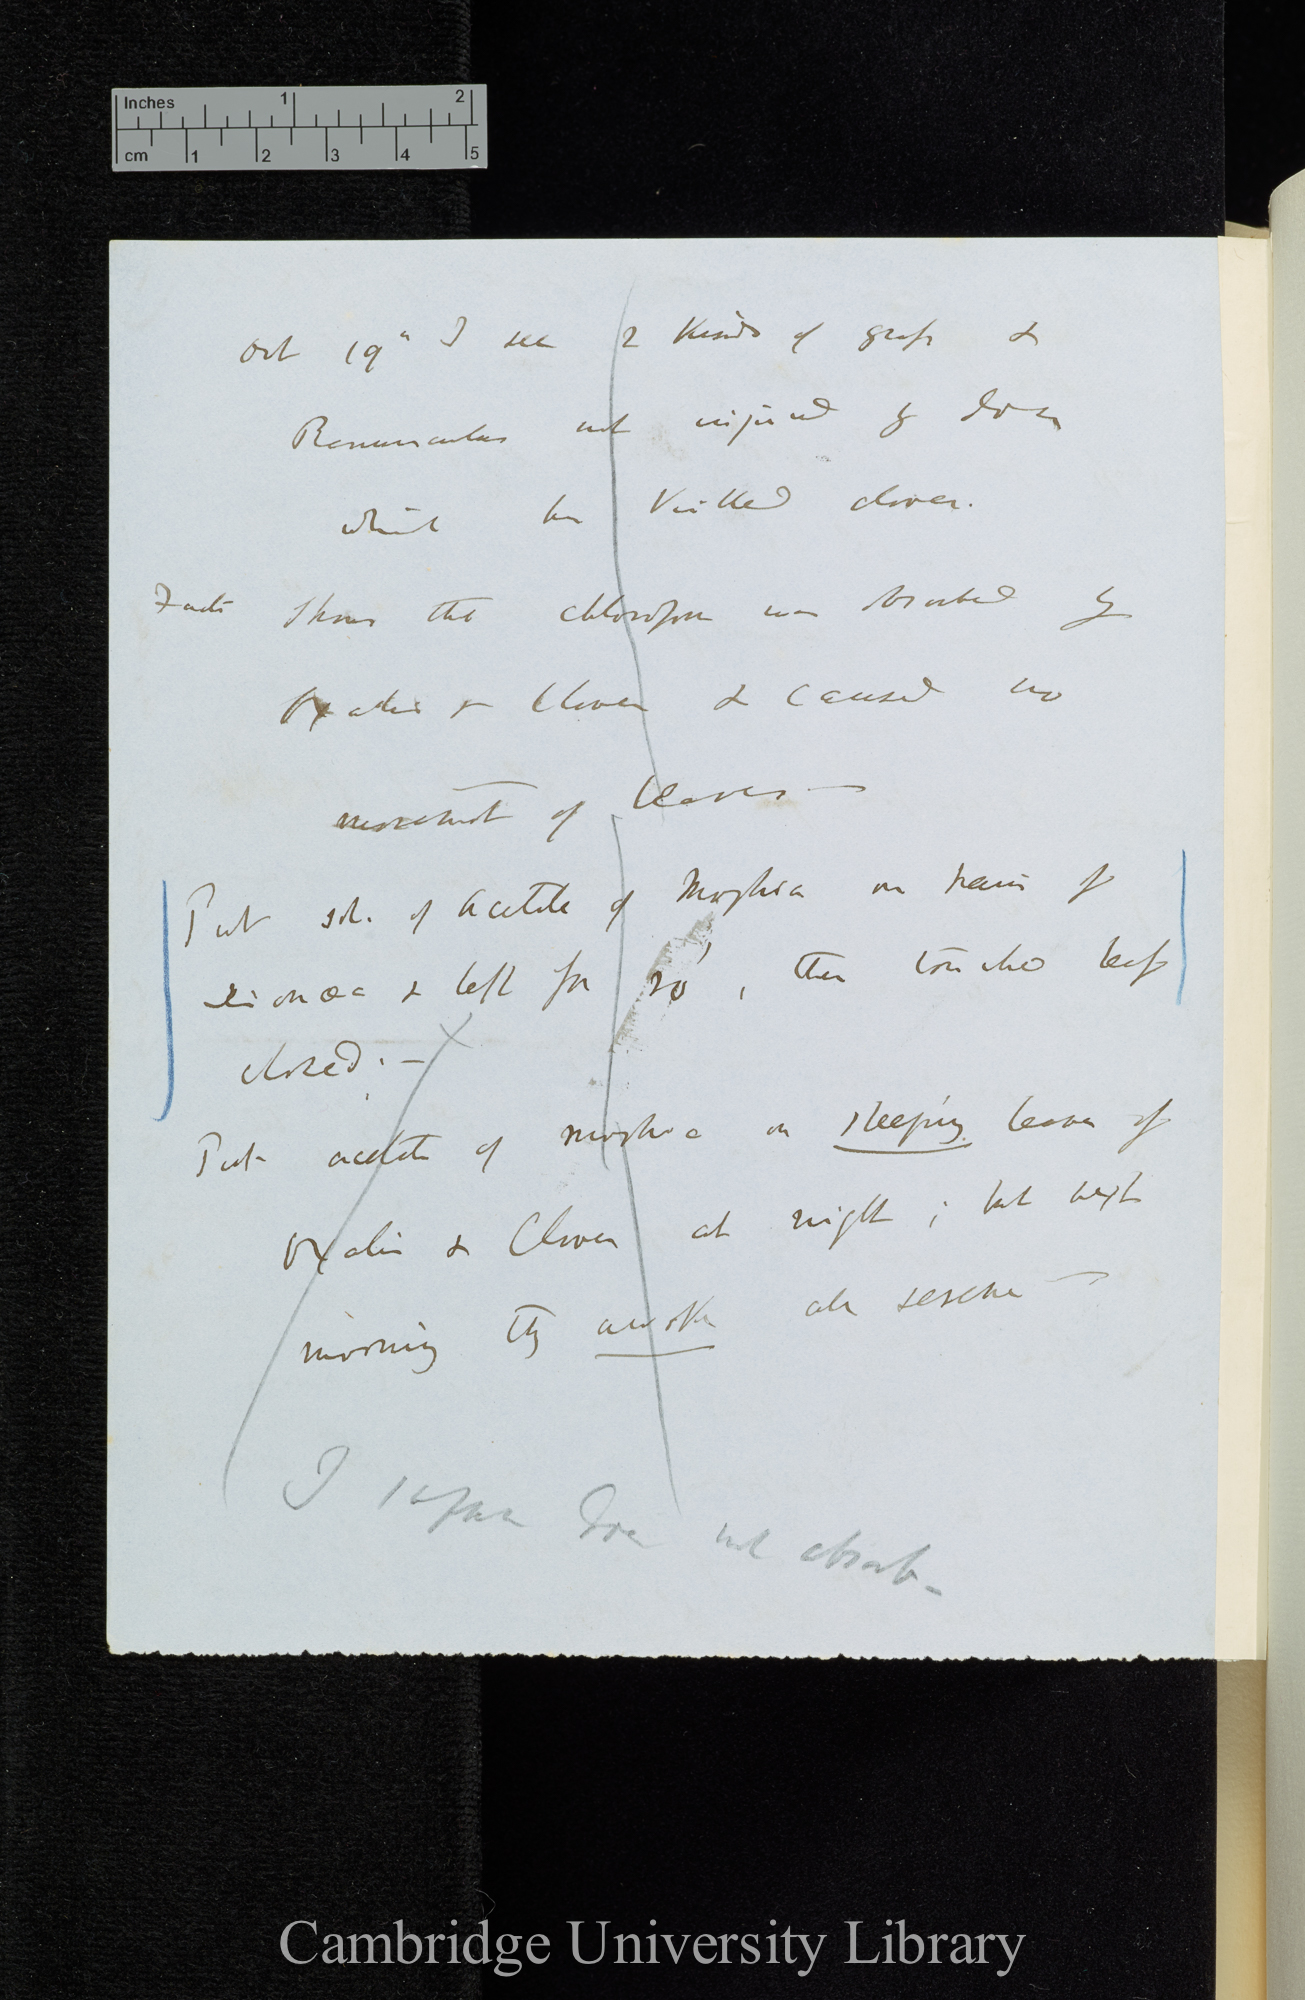 Inches 1 2
cm 1 2 3 4 5
Oct 19th I see 2 kinds of grass &
Ranunculus not injured by dose
which has killed clover.
Facts Shows that chloroform was absorbed by
Oxalis & Clover & caused no
movement of leaves —
Put sol. of Acetate of Morphia on hairs of
Dionæa & left for 20', then touched leaf
closed. —
Put acetate of morphia on sleeping leaves of
Oxalis & Clover at night; but next
morning they awoke all serene —
I suppose does not absorb —
Cambridge University Library